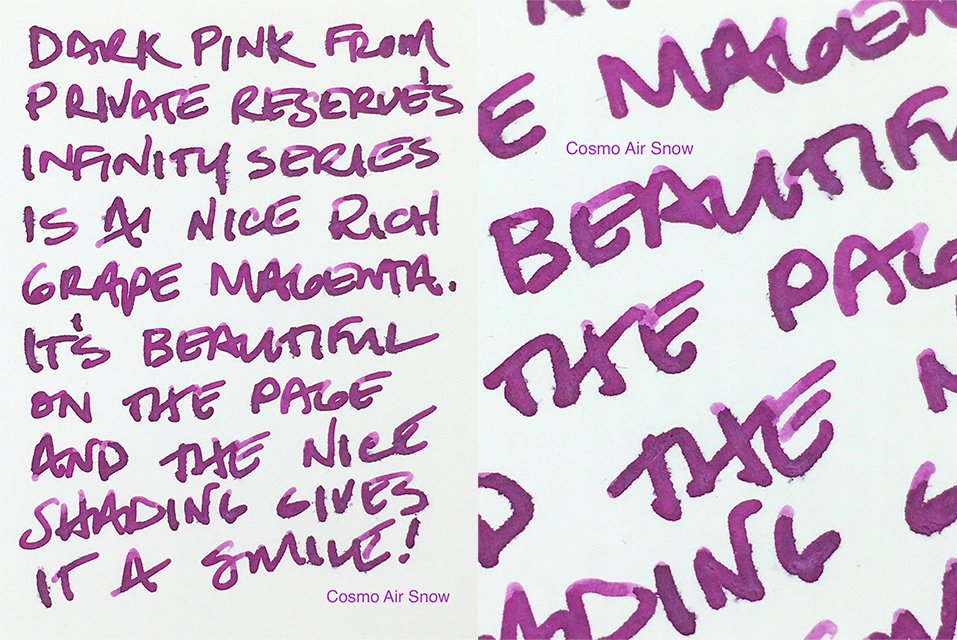 DARK PINK FROM
PRIVATE RESERVE'S
INFINITY SERIES
IS A NICE RICH
GRAPE MAGENTA.
IT'S BEAUTIFUL
ON THE PAGE
AND THE NICE
SHADING GIVES
IT A SMILE!
Cosmo Air Snow
E MAGEN
Cosmo Air Snow
BEAUTIF
THE PAG
D THE N
ADING G